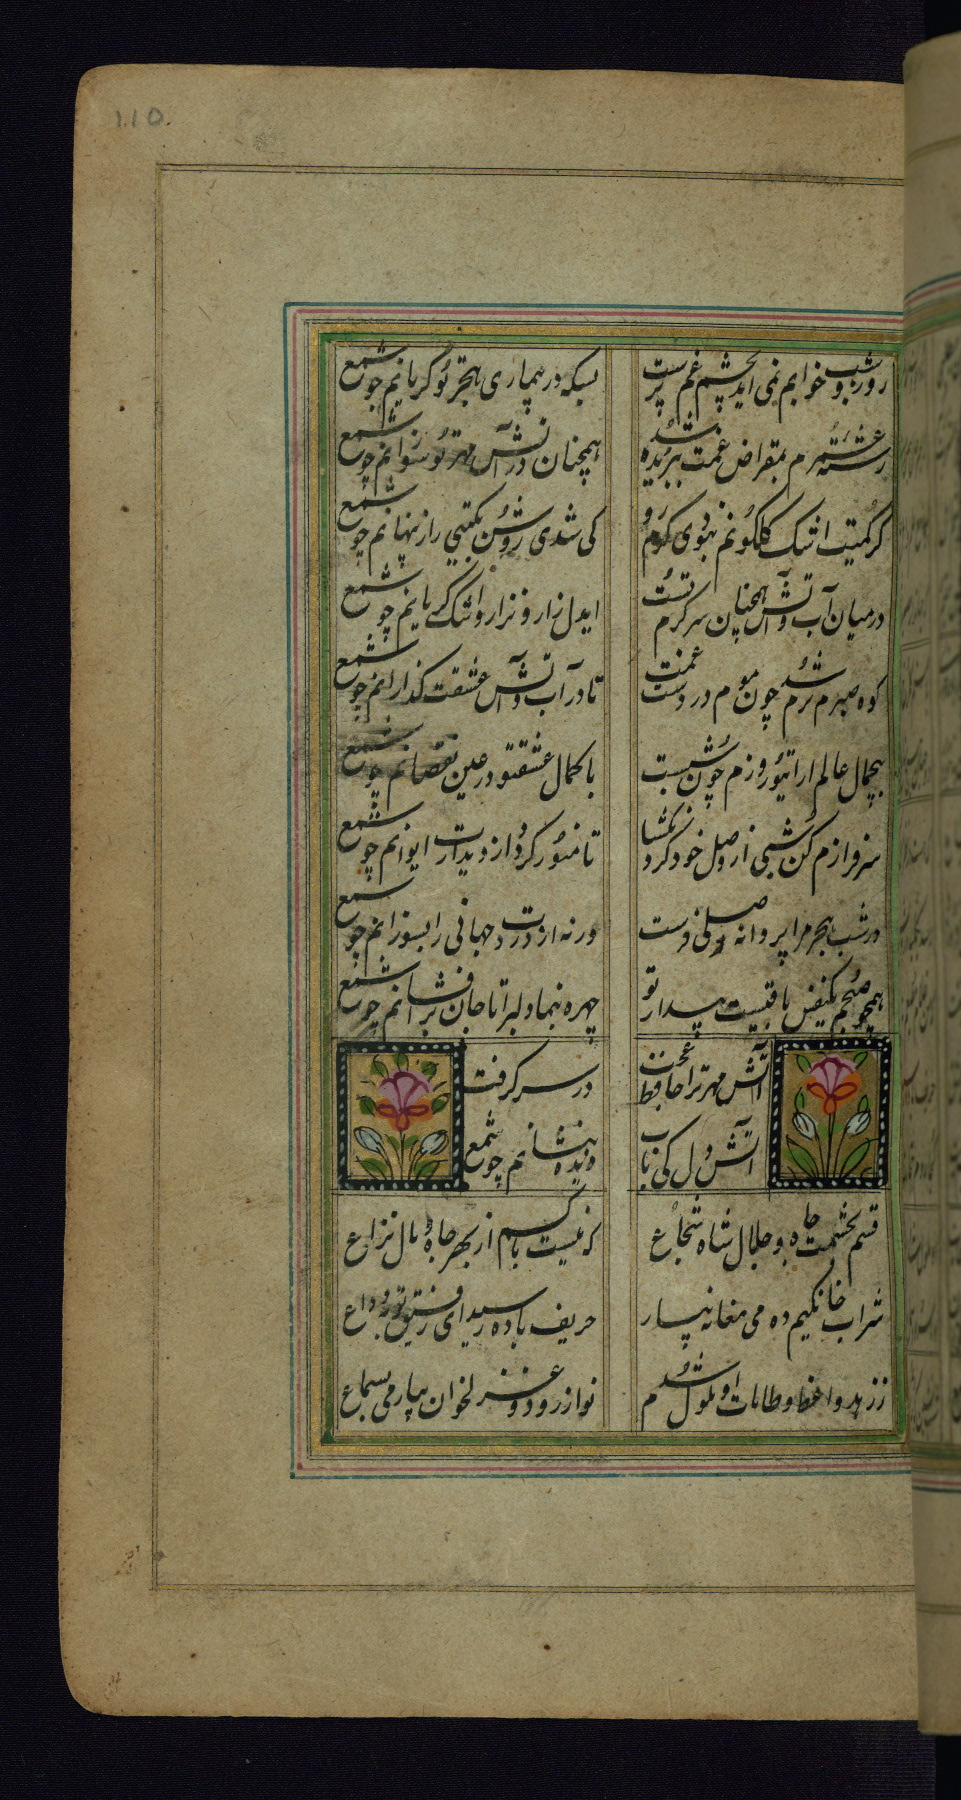 110.
روز و شب خوابم نمی آید بچشم غم پرست
بسکه در بیماری هجر تو گریانیم چو شمع
رشته عمرم بمقراض غمت ببریده شد
همچنان در آتش مهر تو سوزانم چو شمع
گر کمیت اشک گلگونم نبودی گرم رو
کی شدی روشن بگیتی راز پنهانم چو شمع
در میان آب و آتش همچنان سرگرم تست
ایدل زار و نزار و اشک گریانیم چو شمع
کوه صبرم نرم شد چون موم در دست غمت
تا در آب و آتش عشقت گدازانم چو شمع
بیجمال عالم آرای تو روزم چون شبست
با کمال عشق تو در عین نقصانم چو شمع
سرفرازم کن شبی از وصل خود گردنکشا
تا منور گردد از دیدارت ایوانم چو شمع
در شب هجر مرا پروانه وصلی فرست
ورنه از دردت جهانی را بسوزانم چو شمع
همچو صبحم یکنفس باقیست بیدار تو
چهره بنما دلبرا تا جان برافشانم چو شمع
آتش مهر ترا حافظ عجب
در سر گرفت
آتش دل کی بآب
دیده بنشانم چو شمع
قسم بحشمت و جاه و جلال شاه شجاع
که نیست با کسم از بهر جاه و مال نزاع
شراب خانگیم ده می مغانه بیار
حریف باده رسید ای رفیق توبه وداع
ز زهد واعظ و طامات او ملول شدم
نواز رود و غزلخوان بیار می بسماع